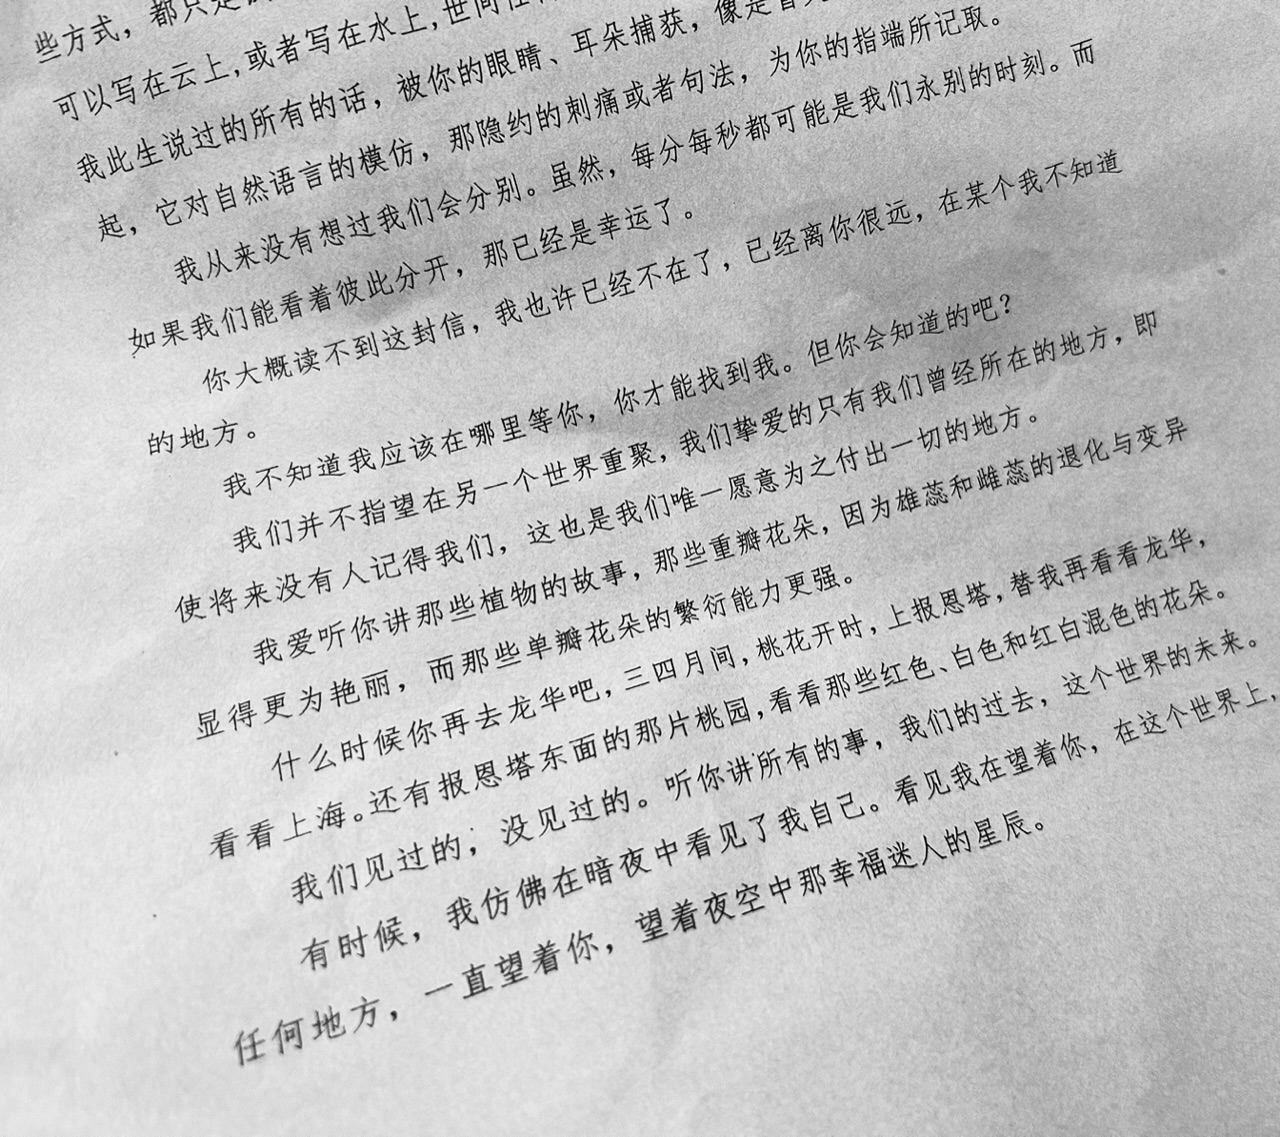 些方式，都只是
可以写在云上，或者写在水上，世间任何
我此生说过的所有的话，被你的眼睛、耳朵捕获，像是
起，它对自然语言的模仿，那隐约的刺痛或者句法，为你的指端所记取。
我从来没有想过我们会分别。虽然，每分每秒都可能是我们永别的时刻。而
如果我们能看着彼此分开，那已经是幸运了。
你大概读不到这封信，我也许已经不在了，已经离你很远，在某个我不知道
的地方。
我不知道我应该在哪里等你，你才能找到我。但你会知道的吧？
我们并不指望在另一个世界重聚，我们挚爱的只有我们曾经所在的地方，即
使将来没有人记得我们，这也是我们唯一愿意为之付出一切的地方。
我爱听你讲那些植物的故事，那些重瓣花朵，因为雄蕊和雌蕊的退化与变异
显得更为艳丽，而那些单瓣花朵的繁衍能力更强。
什么时候你再去龙华吧，三四月间，桃花开时，上报恩塔，替我再看看龙华，
看看上海。还有报恩塔东面的那片桃园，看看那些红色、白色和红白混色的花朵。
我们见过的；没见过的。听你讲所有的事，我们的过去，这个世界的未来。
有时候，我仿佛在暗夜中看见了我自己。看见我在望着你，在这个世界上，
任何地方，一直望着你，望着夜空中那幸福迷人的星辰。